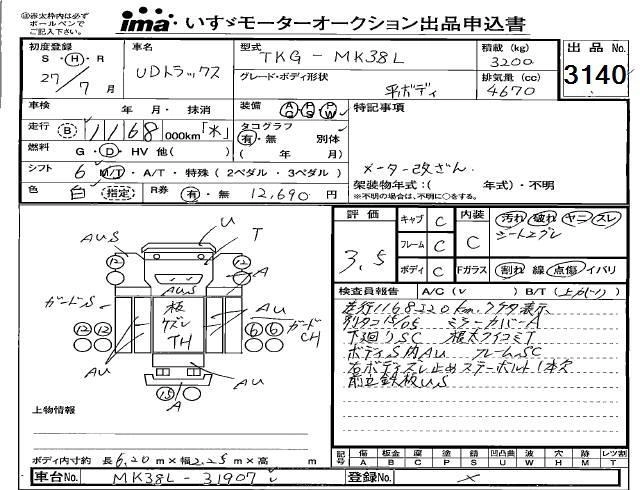 ㊟赤太枠内は必ずボールペンでご記入下さい。
ima いすゞモーターオークション出品申込書
初度登録 S・H・R 27/7月
車名 UDトラックス
型式 TKG-MK38L
グレード・ボディ形状 平ボディ
積載(kg) 3200
排気量(cc) 4670
出品No. 3140
車検 年 月・抹消
装備 AC PS PW
特記事項
走行 B 1168,000km「水」
タコグラフ 有・無 別体
( 年 月)
燃料 G・D・HV 他( )
メーター改ざん
シフト 6 M/T・A/T・特殊(2ペダル・3ペダル)
架装物年式:( 年式)・不明
※不明の場合は、不明に○をする。
色 白 指定 R券 有・無 12,690円
評価 3.5
キャブ C
フレーム C
ボディ C
内装 C
汚れ 破れ ヤニ スレ
シートエグレ
Fガラス 割れ 線 点傷 イバリ
U
T
AUS
A
12 12
AUS
板
ケズレ
TH
AU
ガードS
ガードCH
12 12 6 6
AU
AU
15
A
検査員報告 A/C(✓ ) B/T(上がり)
走行1168220km,
ミラーカバーA
下廻りSC 根太クイコミT
ボディS凹AU フレームSC
右ボディズレ止めステーボルト1本欠
前立鉄板US
上物情報
ボディ内寸約 長6,20m×幅2,25m×高 m
記号 傷A 板金B 座C 塗P 錆S 凹凸曲U 波W 穴H 無M レンズ割T
車台No. MK38L-31907
登録No. ×